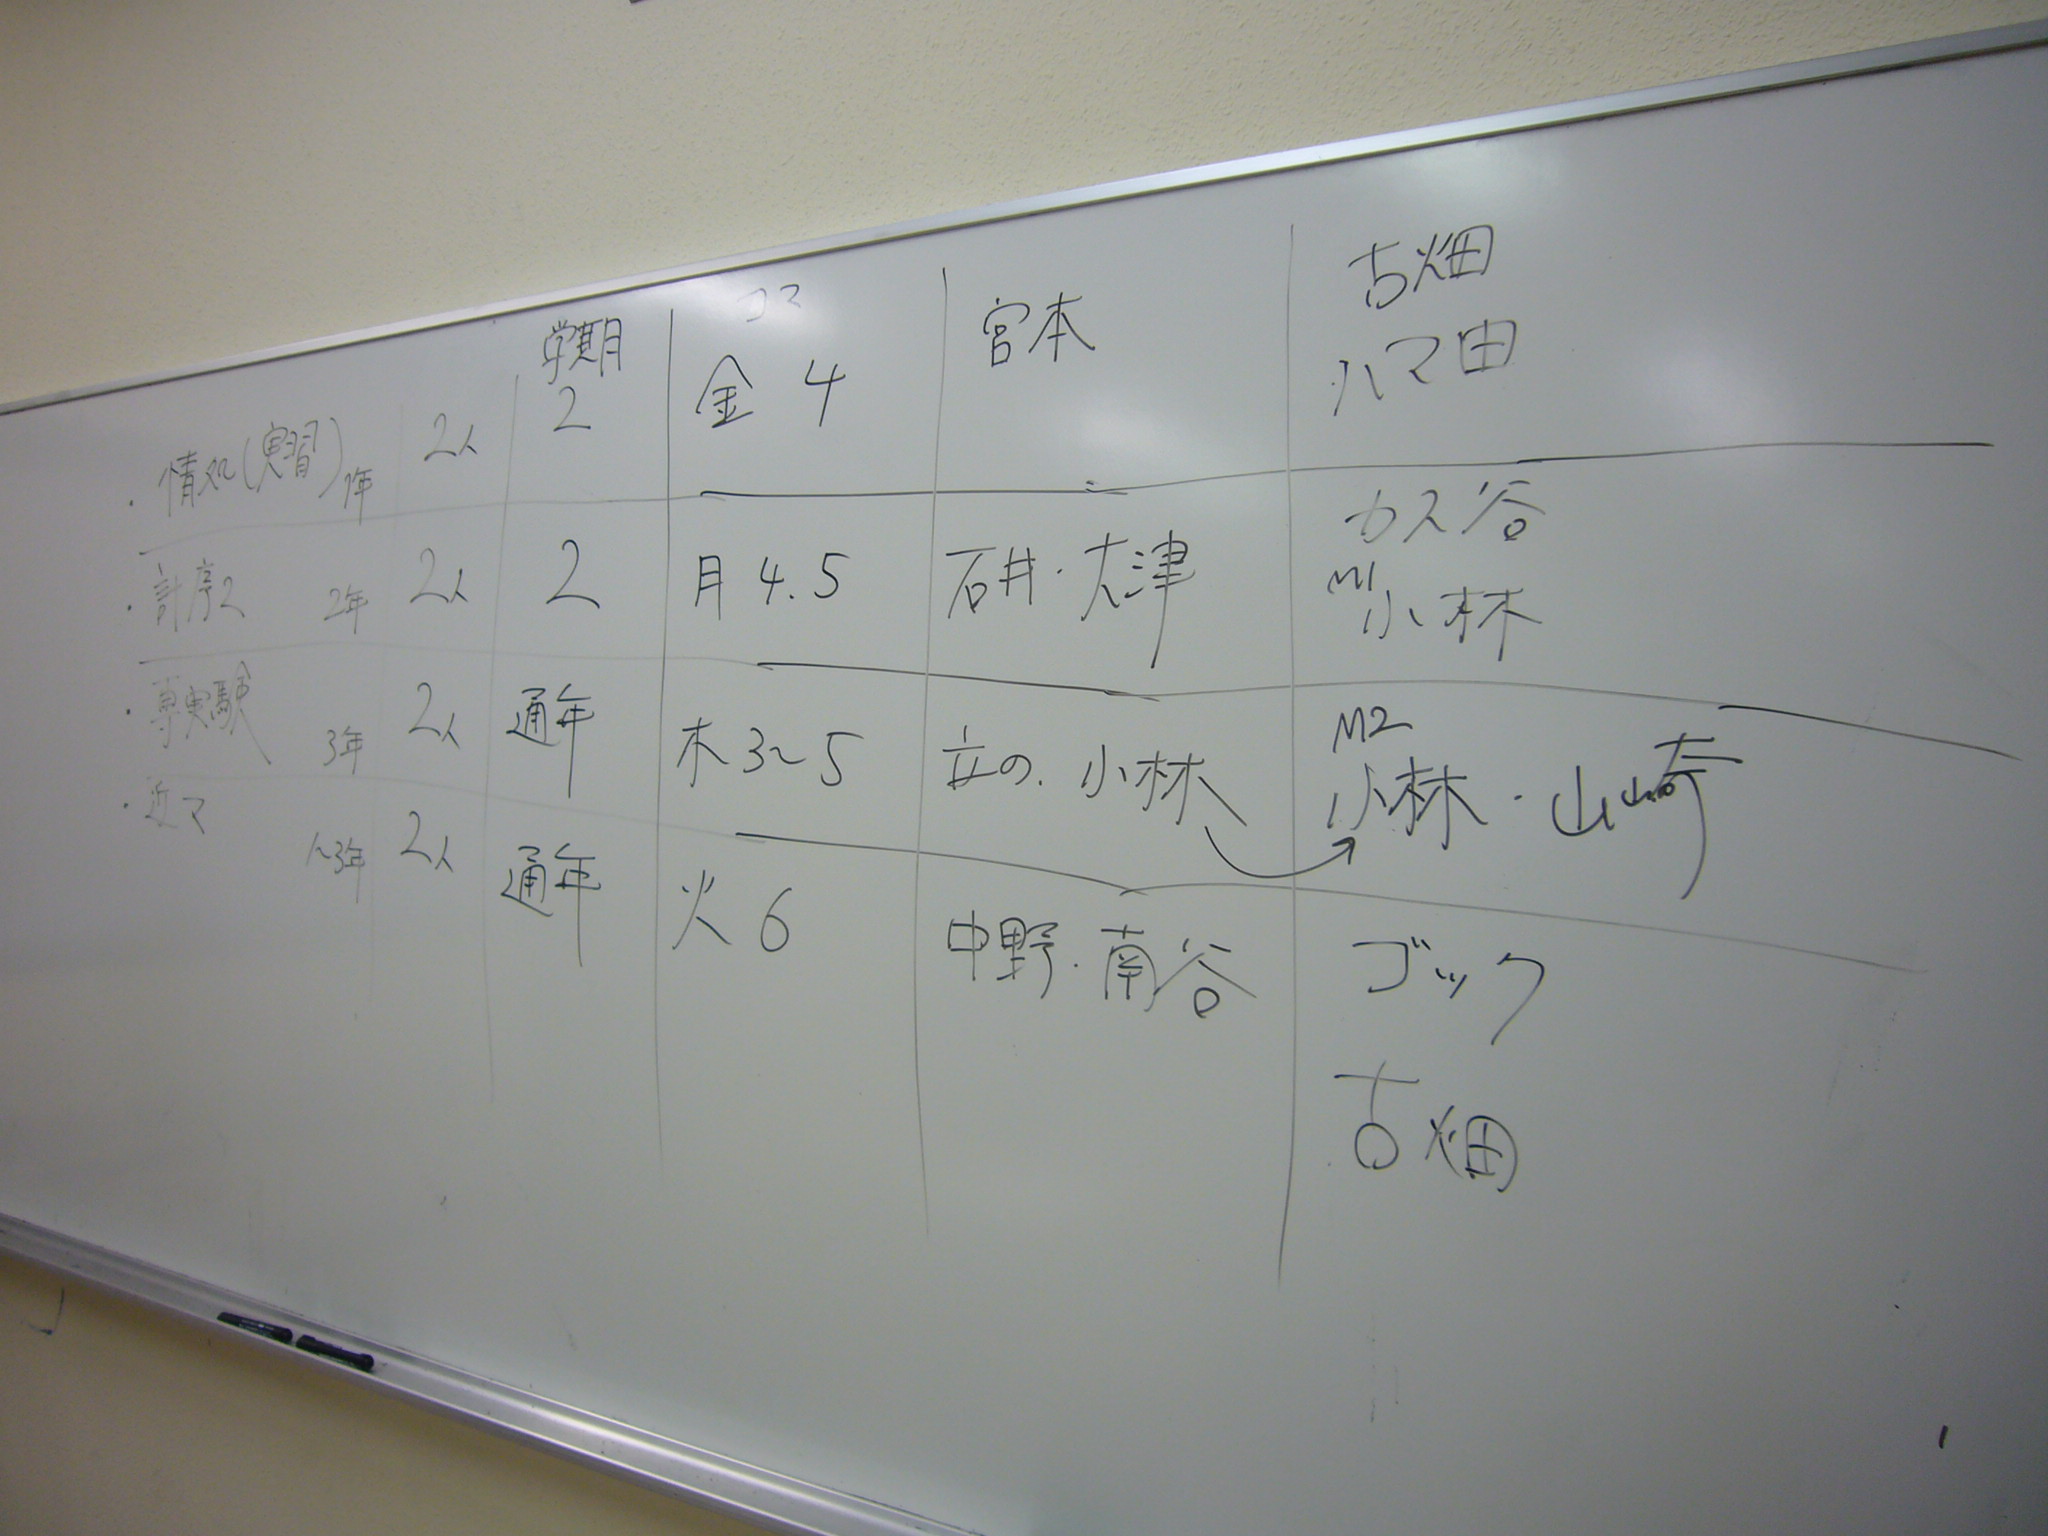 学期 コマ
・情処(実習) 1年 2人 2 金 4 宮本 古畑
ハマ田
・計序2 2年 2人 2 月 4.5 石井・大津 カス谷
M1 小林
・専実験 3年 2人 通年 木 3~5 立の、小林 → M2
小林・山崎
・近マ 1~3年 2人 通年 火 6 中野・南谷 ゴック
古畑